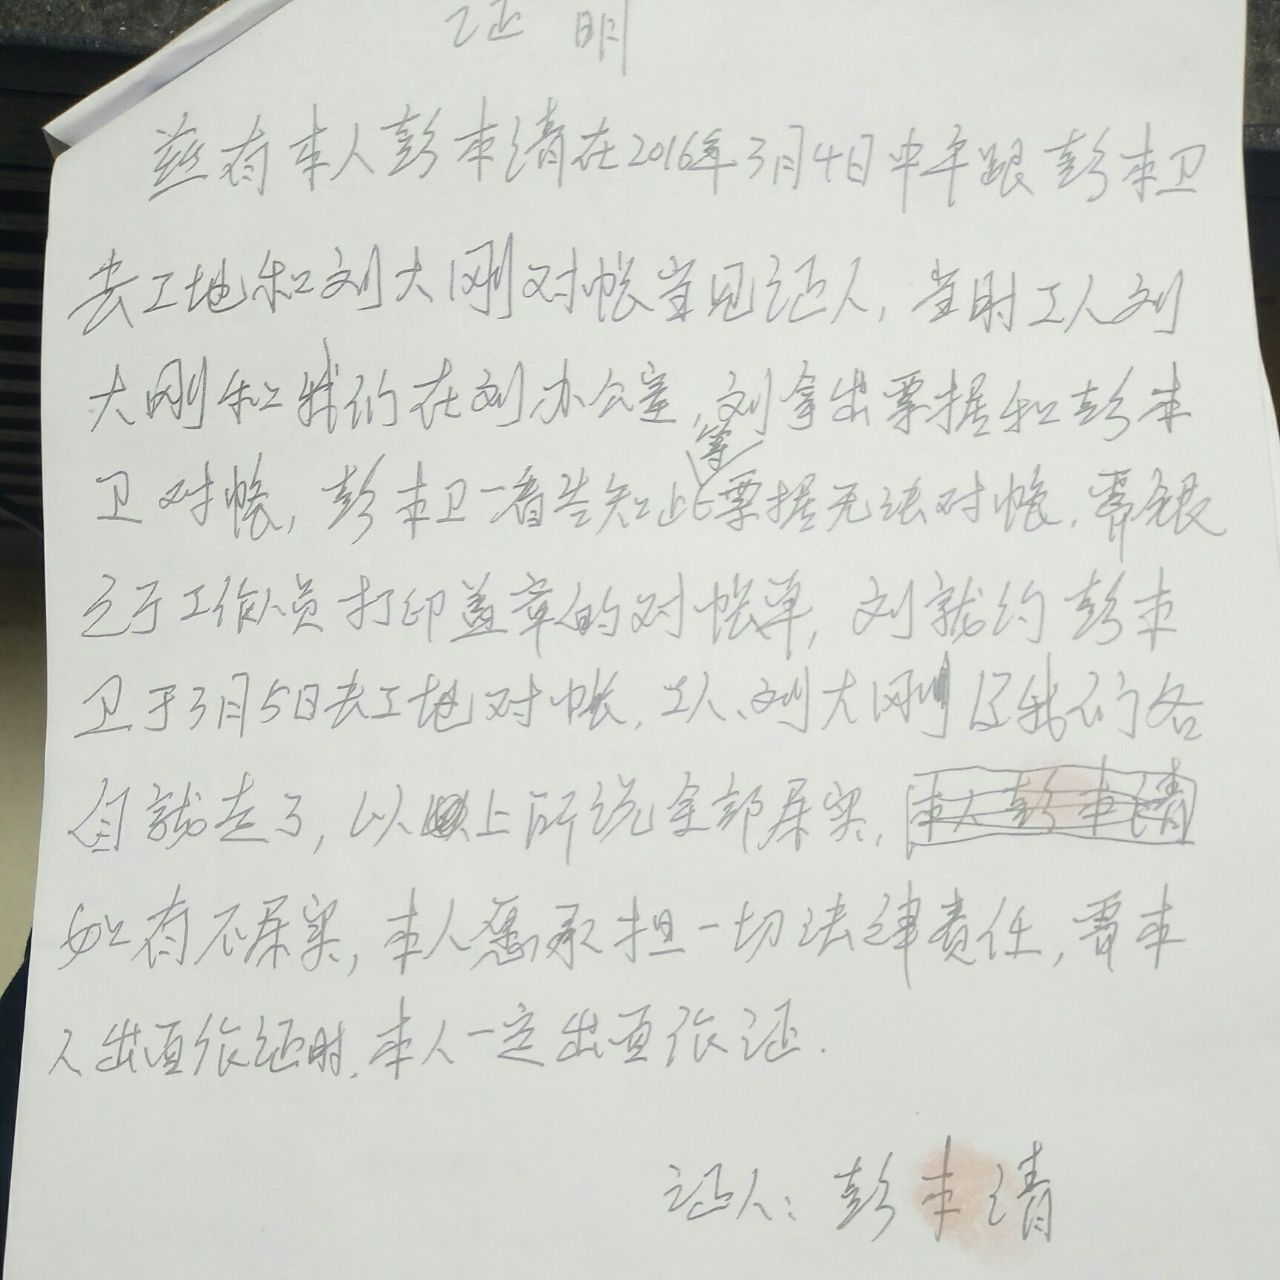 证 明
兹有本人彭本清在2016年3月4日中午跟彭本卫
去工地和刘大刚对帐当见证人,当时工人刘
大刚和我们在刘办公室,刘拿出票据和彭本
卫对帐,彭本卫一看告知此等票据无法对帐,需银
行工作人员打印盖章的对帐单,刘就约彭本
卫于3月5日去工地对帐,工人、刘大刚及我们各
自就走了,以上所说全部属实,本人彭本清
如有不属实,本人愿承担一切法律责任,需本
人出面作证时,本人一定出面作证.
证人:彭本清